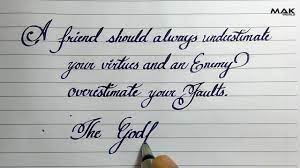 MAK
A friend should always underestimate
your virtues and an Enemy
overestimate your Faults.
The God